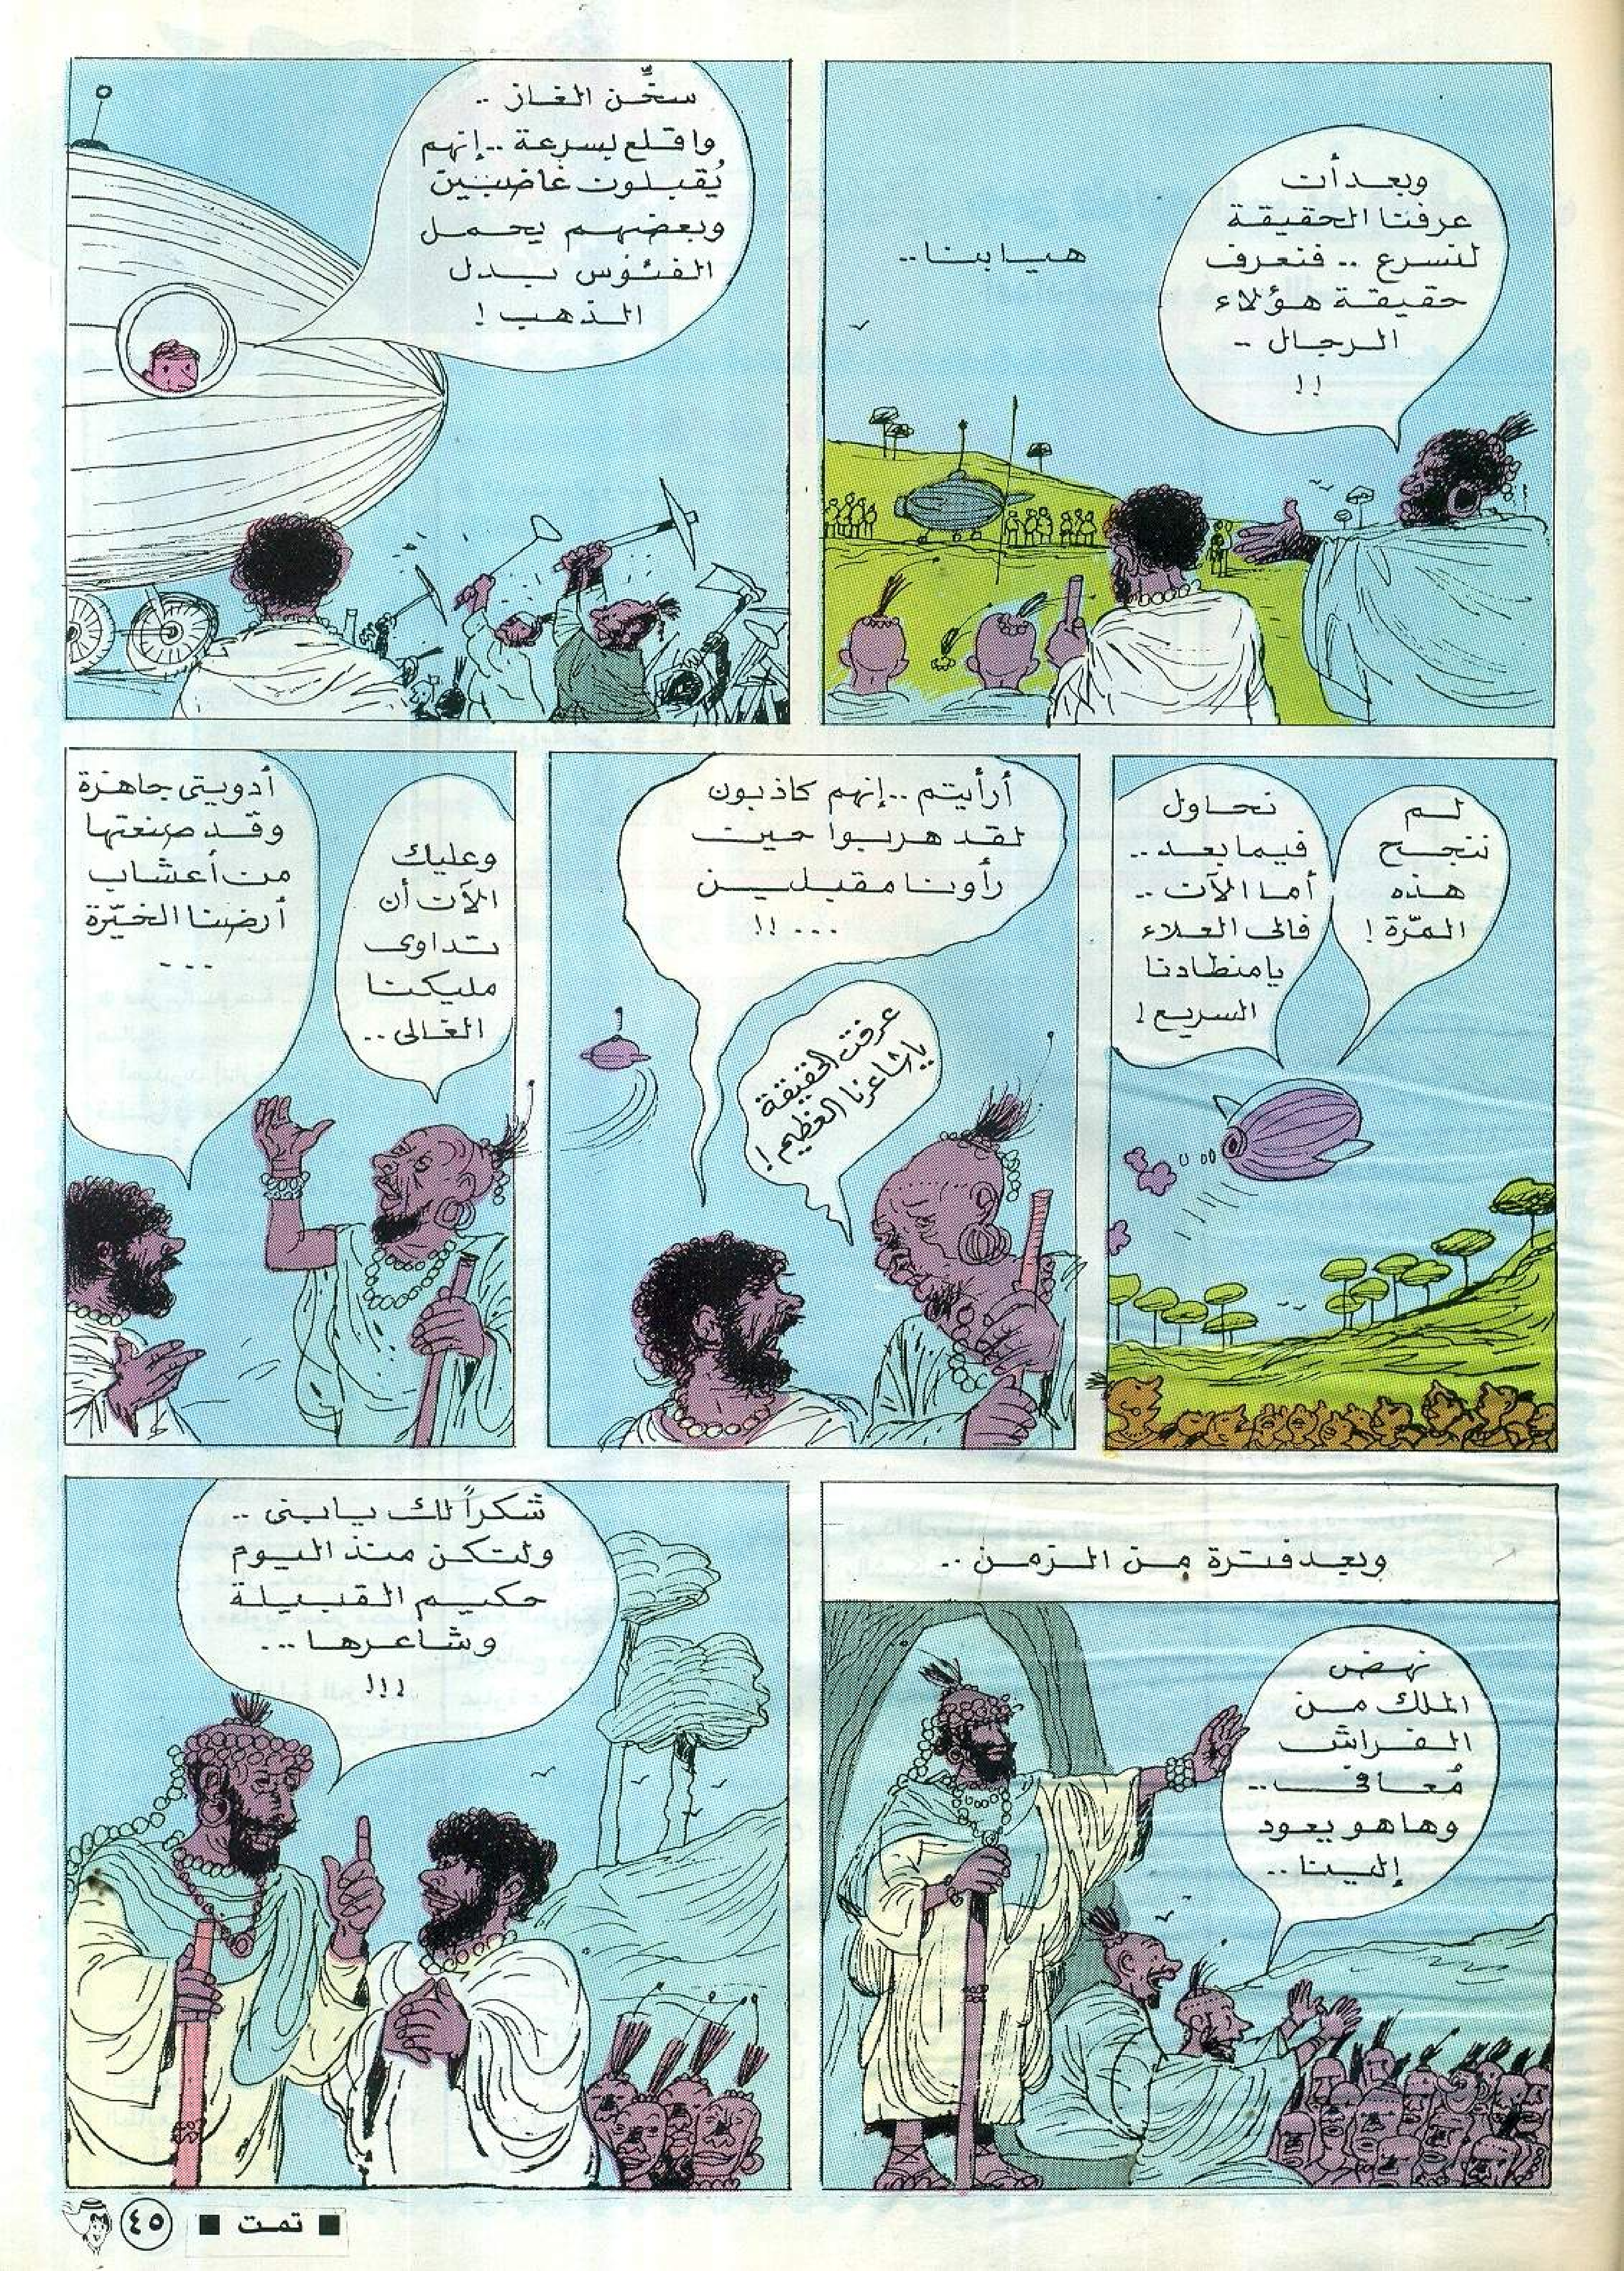 وبعد أن
عرفنا الحقيقة
لنسرع .. فنعرف
حقيقة هؤلاء
الرجال ..
!!
هيا بنا ..
سخِّن الغاز ..
واقلع بسرعة .. إنهم
يُقبلون غاضبين
وبعضهم يحمل
الفئوس بدل
الذهب !
لم
ننجح
هذه
المرّة !
نحاول
فيما بعد ..
أما الآن ..
فالى العلاء
يا منطادنا
السريع !
أرأيتم .. إنهم كاذبون
لقد هربوا حين
رأونا مقبلين
... !!
عرفت الحقيقة
يا شاعرنا العظيم !
وعليك
الآن أن
تداوى
مليكنا
الغالى ..
أدويتى جاهزة
وقد صنعتها
من أعشاب
أرضنا الخيّرة
...
وبعد فترة من الزمن ..
نهض
الملك من
الفراش
مُعافى ..
وها هو يعود
إلينا ..
شكراً لك يا بنى ..
ولتكن منذ اليوم
حكيم القبيلة
وشاعرها ...
!!!
■ تمت ■
٤٥